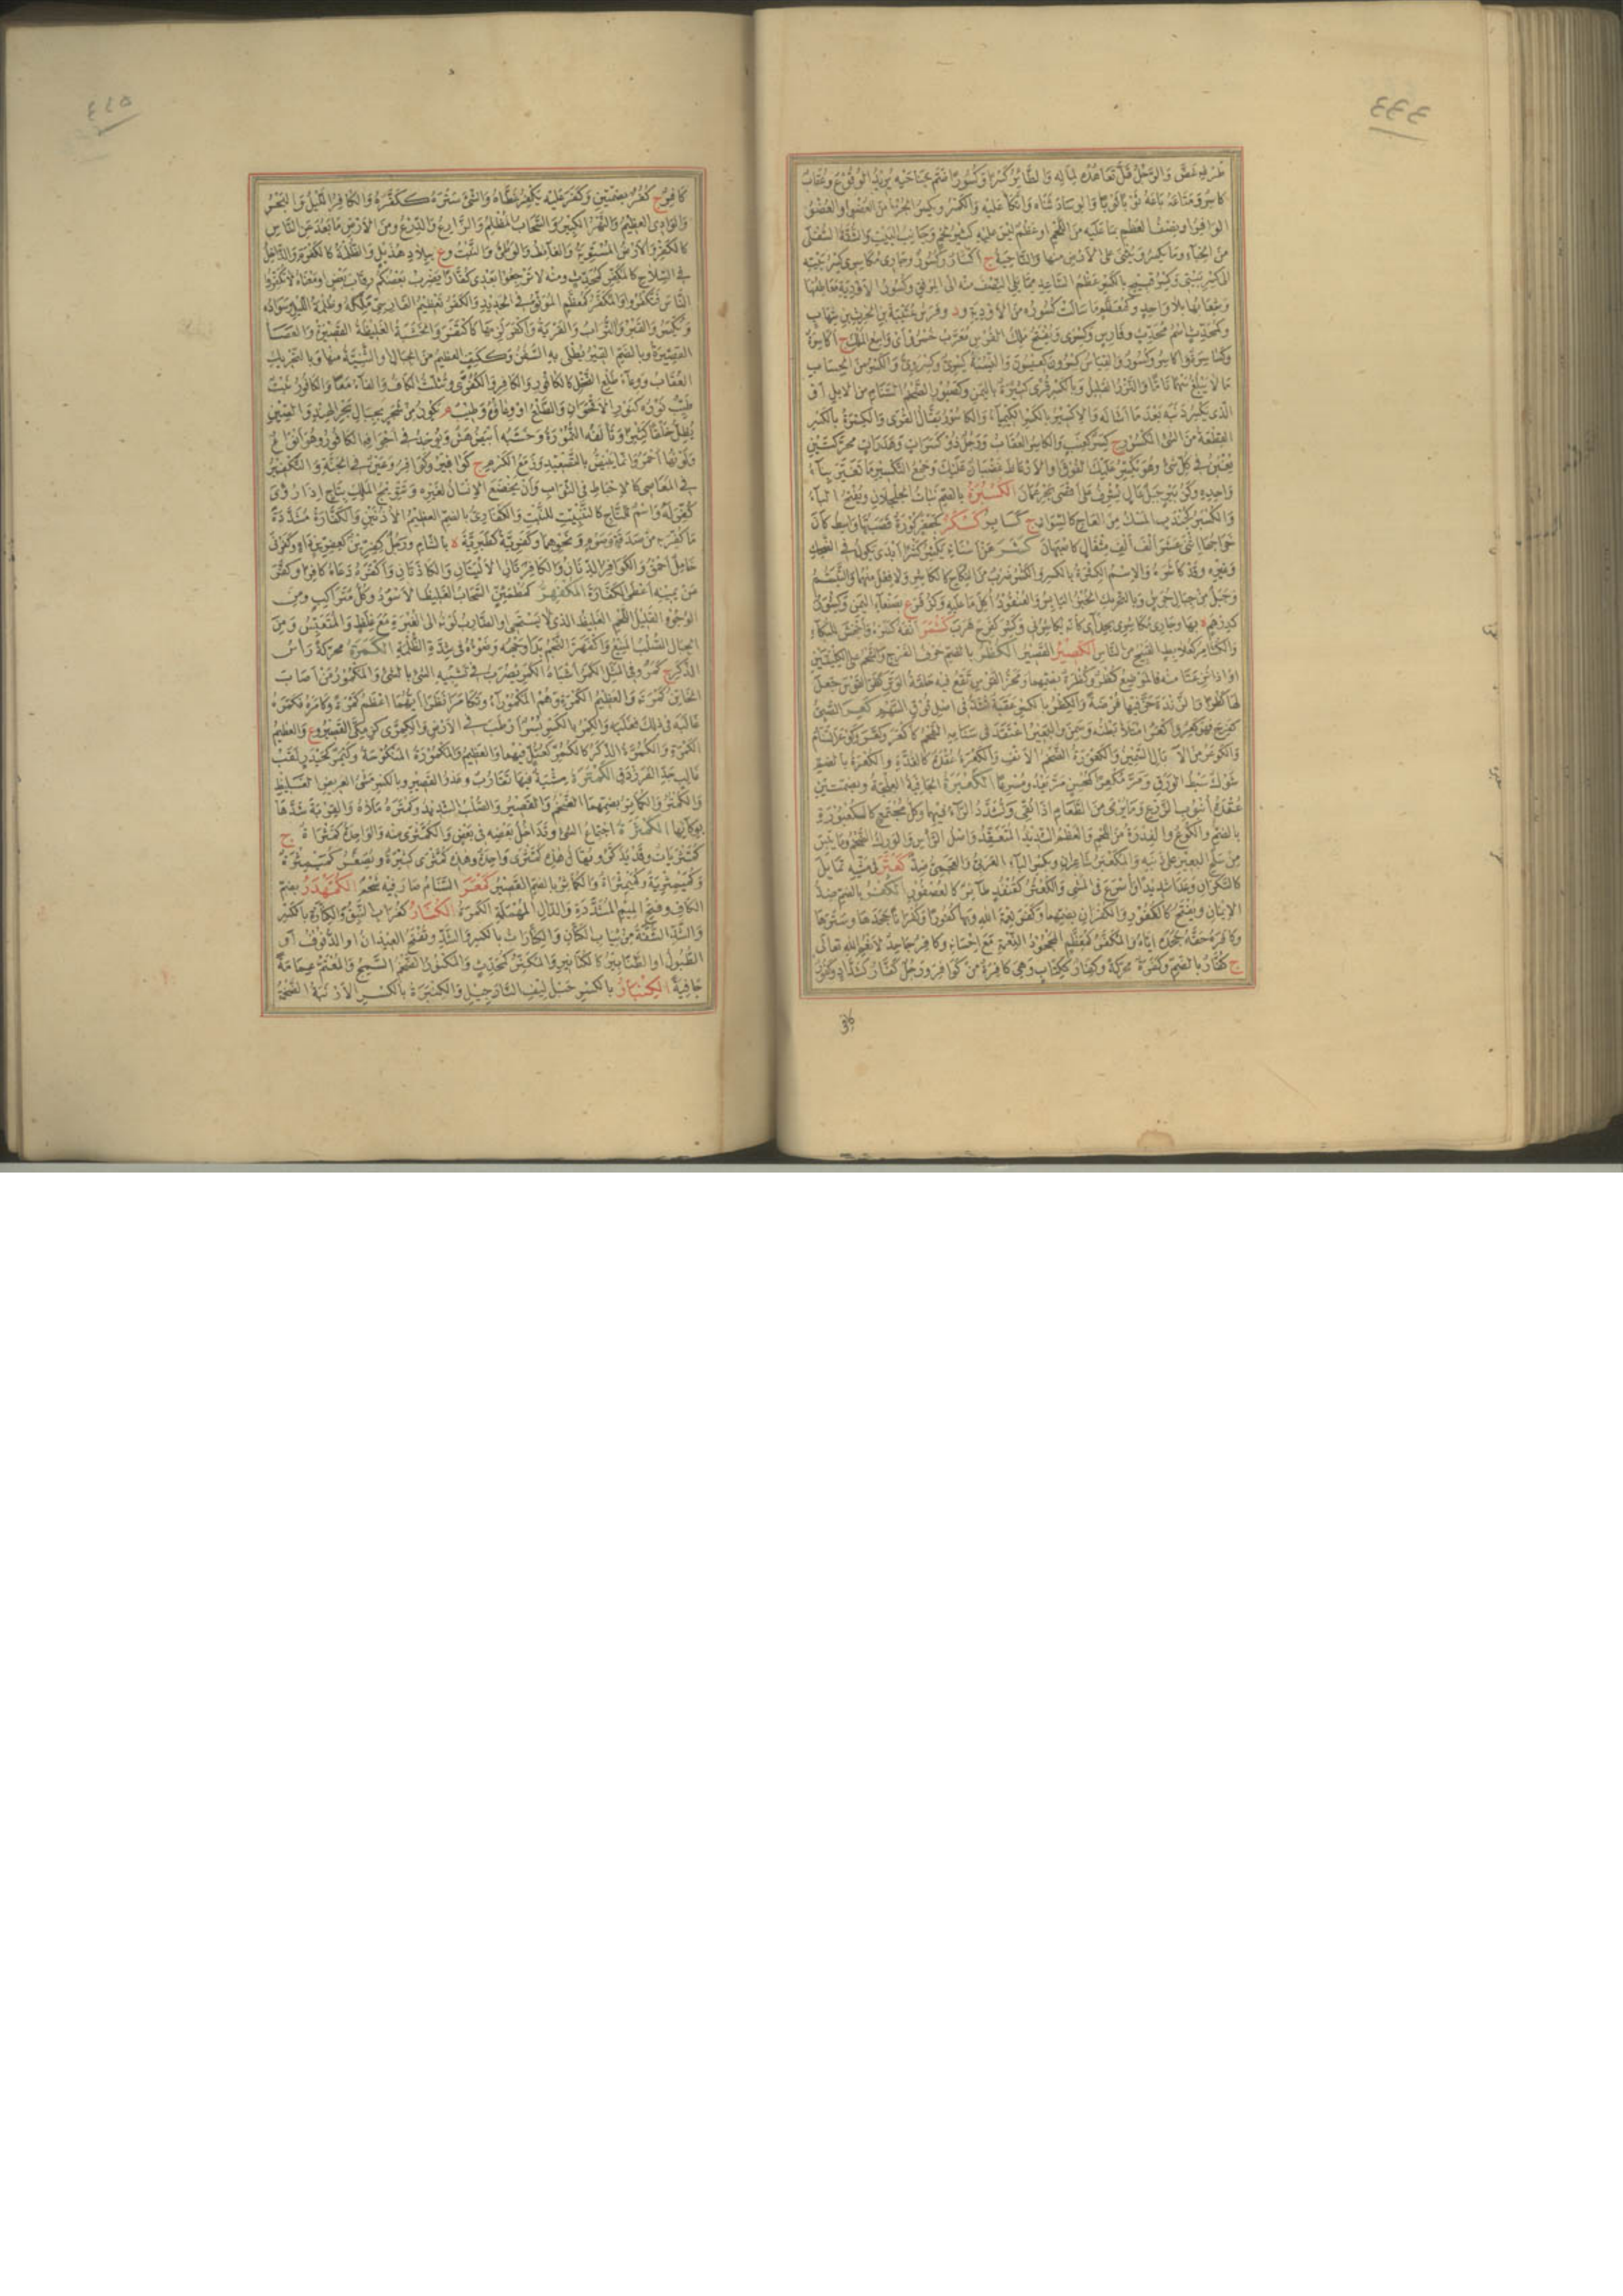 طرفه غض والرجل قل تعاهده لماله والطائر كسرا وكسورا ضم جناحيه يريد الوقوع وعقاب
كاسر ومتاعه باعه ثوبا ثوبا والوساد ثناه واتكأ عليه والكسر ويكسر الجزء من العضو او العضو
الوافر او نصف العظم بما عليه من اللحم او عظم ليس عليه كثير لحم وجانب البيت والشقة السفلى
من الخباء وما تكسر وتثنى على الارض منها والناحية ج اكسار وكسور وجاري مكاسري كسر بيته
الى كسر بيتي وكسر قبيح بالكسر عظم الساعد مما يلي النصف منه الى المرفق وكسور الاودية معاطفها
وشعابها بلا واحد وكمعظم ما سالت كسوره من الاودية ود وفرس عتيبة بن الحرث بن شهاب
وكمحدث اسم محدث وفارس وكسرى ويفتح ملك الفرس معرب خسرو اي واسع الملك ج اكاسرة
وكساسرة واكاسر وكسور والقياس كسرون كعيسون والنسبة كسري وكسروي والكسر من الحساب
ما لا يبلغ سهما تاما والنزر القليل وبالكسر قرى كثيرة باليمن وكصبور الضخم السنام من الابل او
الذي يكسر ذنبه بعد ما اشاله والاكسير بالكسر الكيمياء والكاسور بقال القرى والكسرة بالكسر
القطعة من الشئ المكسور ج كسر كعنب والكاسر العقاب ورجل ذو كسرات وهدرات محركتين
يغبن في كل شئ وهو يكسر عليك الفوق او الارعاظ غضبان عليك وجمع التكسير ما تغير بناء
واحده وكزبير جبل عال يشرف على اقصى بحر عمان الكسبرة بالضم نبات الجلجلان وتفتح الباء
والكسبر كجندب المسك من العاج كالسوار ج كسابر كسكر كجعفر كورة قصبتها واسط كان
خراجها اثني عشر الف الف مثقال كاصبهان كشر عن اسنانه يكشر كشرا ابدى يكون في الضحك
وغيره وقد كاشره والاسم الكشرة بالكسر والكشر ضرب من النكاح كالكاشر ولا فعل منهما والتبسم
وجبل من جبال جرش وبالتحريك الخبز اليابس والعنقود اكل ما عليه وكزفر ع بصنعاء اليمن وكشور
كدرهم ة بها وجاري مكاشري بحذائي كانه يكاشرني وكشر كفرح هرب كشمر انفه كسره واجهش للبكاء
والكشامر كعلابط القبيح من الناس الكصير القصير الكظر بالضم حرف الفرج والشحم على الكليتين
او اذا نزعتا منه فالموضع كظر وكظرة بضمهما ومحز القوس تقع فيه حلقة الوتر كظر القوس جعل
لها كظرا والزندة حز فيها فرضة والكظر بالكسر عقبة تشد في اصل فوق السهم كعر الصبي
كفرح فهو كعر واكعر امتلأ بطنه وسمن والبعير اعتقد في سنامه الشحم كاكعر وكعر وكوعر السنام
والكوعر من الاسنام السمين والكعورة الضخم الانف والكعرة عقدة كالغدة والكعرة بالضم
شوك سبط الورق ومر مكعرا كمحسن مر يعدو مسرعا الكعبرة الجافية العلجة وبضمتين
عقدة انبوب الزرع وما يرمى من الطعام اذا نقي وتشدد الراء فيهما وكل مجتمع كالكعبورة
بالضم والكوع والفدرة من اللحم والعظم الشديد المتعقد واصل الرأس والورك الضخم وما يبس
من سلح البعير على ذنبه والمكعبر شاعران وبكسر الباء العربي والعجمي ضد كعتر في مشيه تمايل
كالسكران وعدا شديدا واسرع في المشي والكعتر كقنفذ طائر كالعصفور الكفر بالضم ضد
الايمان ويفتح كالكفور والكفران بضمهما وكفر نعمة الله وبها كفورا وكفرانا جحدها وسترها
وكافره حقه جحده اياه والمكفر كمعظم المجحود النعمة مع احسانه وكافر جاحد لانعم الله تعالى
ج كفار بالضم وكفرة محركة وكفار ككتاب وهي كافرة من كوافر ورجل كفار كشداد وكفور
كافر
كافر ج كفر بضمتين وكفر عليه يكفر غطاه والشئ ستره ككفره والكافر الليل والبحر
والوادي العظيم والنهر الكبير والسحاب المظلم والزارع والدرع ومن الارض ما بعد عن الناس
كالكفر والارض المستوية والغائط الوطئ والنبت وع ببلاد هذيل والظلمة كالكفرة والداخل
في السلاح كالمكفر كمحدث ومنه لا ترجعوا بعدي كفارا يضرب بعضكم رقاب بعض او معناه لا تكفروا
الناس فتكفروا والمكفر كمعظم الموثوق في الحديد والكفر تعظيم الفارسي ملكه وظلمة الليل وسواده
وتكسر والقبر والتراب والقرية واكفر لزمها كاكتفر والخشبة الغليظة القصيرة والعصا
القصيرة وبالضم القير يطلى به السفن وككتف العظيم من الجبال او الثنية منها وبالتحريك
العقاب ووعاء طلع النخل كالكافور والكافر والكفرى وتثلث الكاف والفاء معا والكافور نبت
طيب نوره كنور الاقحوان والطلع او وعاؤه وطيب م يكون من شجر بجبال بحر الهند والصين
يظل خلقا كثيرا وتألفه النمورة وخشبه ابيض هش ويوجد في اجوافه الكافور وهو انواع
ولونها احمر وانما يبيض بالتصعيد وزمع الكرم ج كوافير وكوافر وعين في الجنة والتكفير
في المعاصي كالاحباط في الثواب وان يخضع الانسان لغيره وتتويج الملك بتاج اذا رؤي
كفر له واسم للتاج كالتنبيت للنبت والكفاري بالضم العظيم الاذنين والكفارة مشددة
ما كفر به من صدقة وصوم ونحوهما وكفرية كطبرية ة بالشام ورجل كفرين كعفرين داه وكفرنى
خامل احمق والكوافر الدنان والكافرتان الاليتان والكاذتان واكفره دعاه كافرا وكفر
عن يمينه اعطى الكفارة المكفهر كمطمئن السحاب الغليظ الاسود وكل متراكب ومن
الوجوه القليل اللحم الغليظ الذي لا يستحي او الضارب لونه الى الغبرة مع غلظ والمتعبس ومن
الجبال الصلب المنيع واكفهر النجم بدا وجهه وضوءه في شدة الظلمة الكمرة محركة رأس
الذكر ج كمر وفي المثل الكمر اشباه الكمر يضرب في تشبيه الشئ بالشئ والمكمور من اصاب
الخاتن كمرته والعظيم الكمرة وهم المكموراء وتكامرا نظرا ايهما اعظم كمرة وكامره فكمره
غالبه في ذلك فغلبه والكمر بالكسر بسر ارطب في الارض والكمرى كزمكى القصير وع والعظيم
الكمرة والكمرة الذكر كالكمر كعتل فيهما والعظيم والمكمورة المنكوحة وكيمر كحيدر لقب
غالب جد الفرزدق الكمترة مشية فيها تقارب وعدو القصير وبالكسر مشي العريض الغليظ
والكمتر والكماتر بضمهما الضخم والقصير والصلب الشديد وكمتره ملأه والقربة شدها
بوكائها الكمثرة اجتماع الشئ وتداخل بعضه في بعض والكمثرى منه والواحدة كمثراة ج
كمثريات وقد يذكر ويقال هذه كمثرى واحدة وهذه كمثرى كثيرة ويصغر كميمثرة
وكميمثرية وكميمثراة والكماثر بالضم القصير كمعر السنام صار فيه شحم الكمهدر بضم
الكاف وفتح الميم المشددة والدال المهملة الكمرة الكنار كغراب النبق والكنارة بالكسر
والشد الشقة من ثياب الكتان والكنارات بالكسر والشد وتفتح العيدان او الدفوف او
الطبول او الطنابير كالكنانير والمكنر كمحدث والمكنور الضخم السمج والمعتم عمامة
جافية الكنبار بالكسر حبل ليف النارجيل والكنبرة بالكسر الارنبة الضخمة